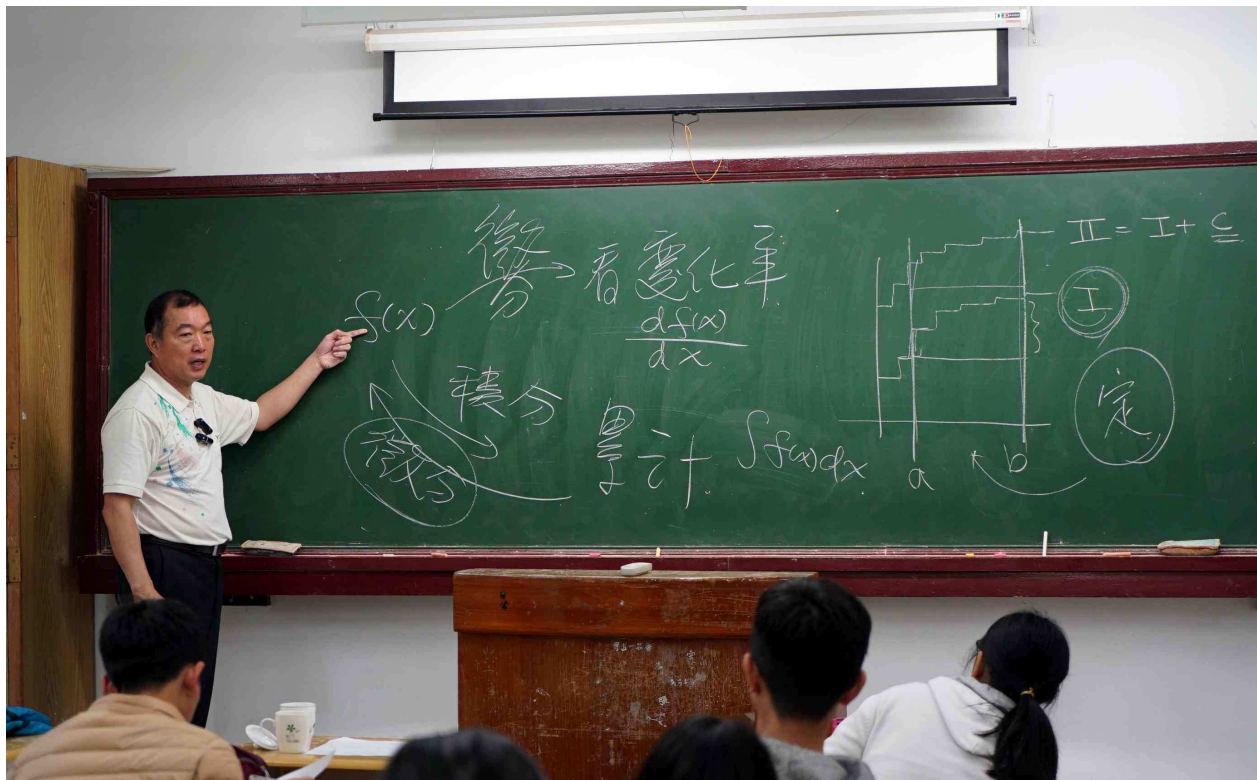 微分 → 看變化率
f(x)
df(x)/dx
積分
微分
累計 ∫f(x)dx
II = I + c
I
定
a b